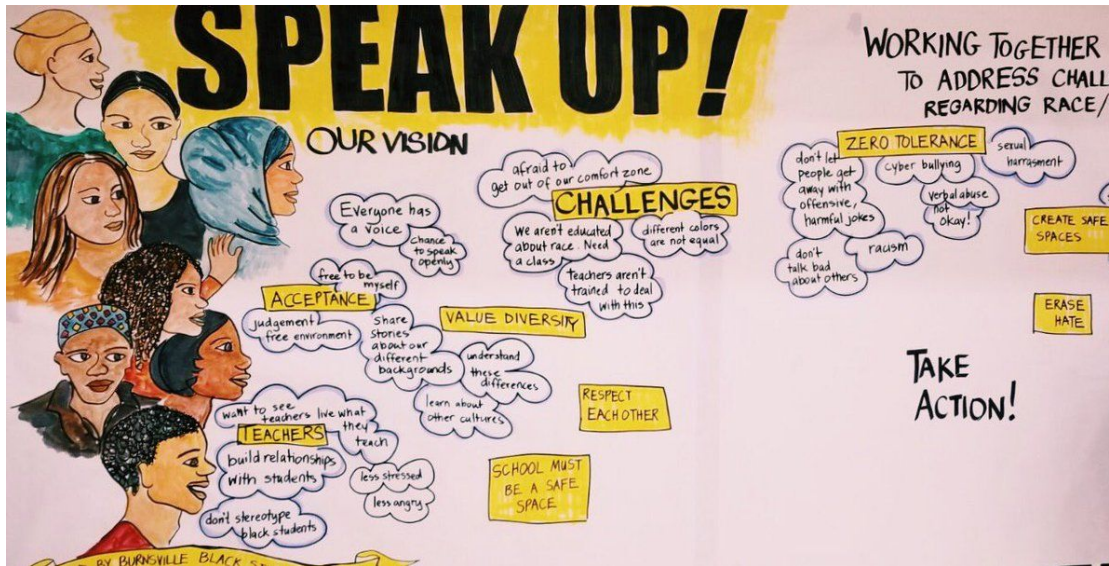 SPEAK UP!
OUR VISION
Everyone has
a voice
chance
to speak
openly
free to be
myself
ACCEPTANCE
judgement
free environment
share
stories
about our
different
backgrounds
VALUE DIVERSITY
understand
these
differences
learn about
other cultures
want to see
teachers live what
they
teach
TEACHERS
build relationships
with students
don't stereotype
black students
less stressed
less angry
afraid to
get out of our comfort zone
CHALLENGES
we aren't educated
about race. Need
a class
different colors
are not equal
teachers aren't
trained to deal
with this
RESPECT
EACH OTHER
SCHOOL MUST
BE A SAFE
SPACE
WORKING TOGETHER
TO ADDRESS CHALL
REGARDING RACE/
ZERO TOLERANCE
don't let
people get
away with
offensive,
harmful jokes
cyber bullying
sexual
harrasment
verbal abuse
not
okay!
racism
don't
talk bad
about others
CREATE SAFE
SPACES
ERASE
HATE
TAKE
ACTION!
BY BURNSVILLE BLACK